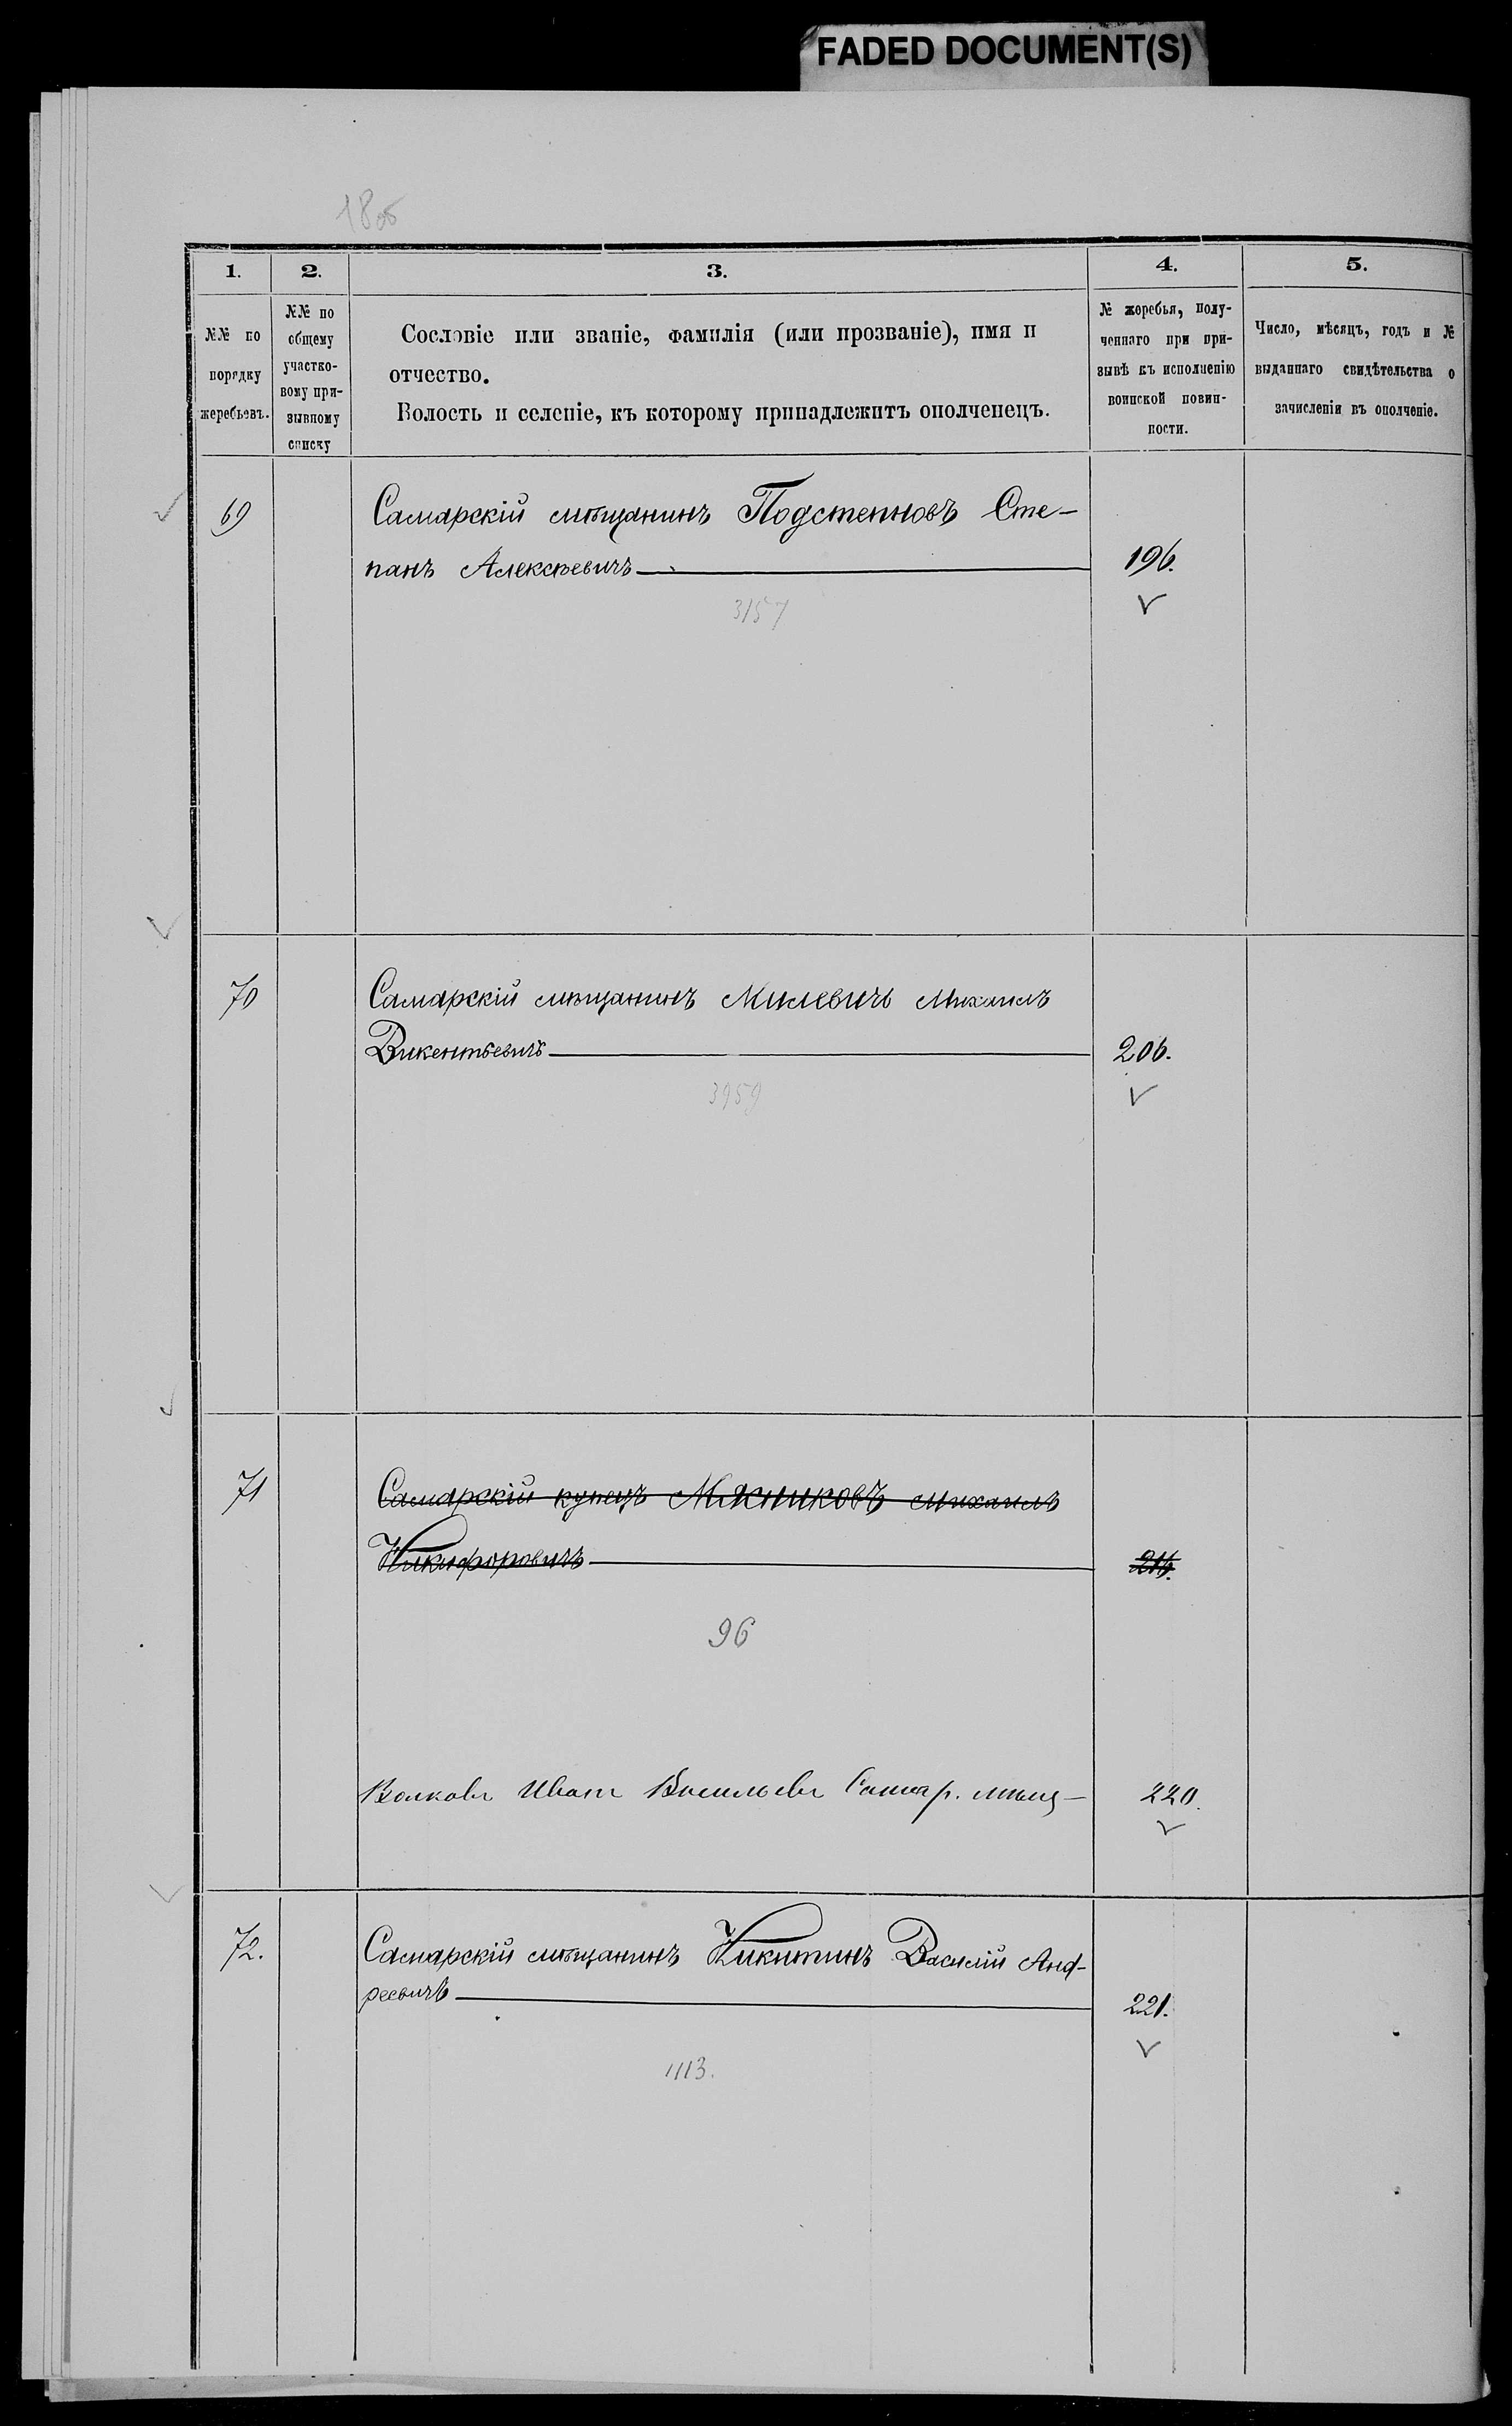 FADED DOCUMENT(S)
1. 2. 3. 4. 5.
№№ по порядку жеребьевъ.
№№ по общему участко-
вому при-
зывному списку
Сословіе или званіе, фамилія (или прозваніе), имя и
отчество.
Волость и селеніе, къ которому принадлежитъ ополченецъ.
№ жеребья, полу-
ченнаго при при-
зывѣ къ исполненію
воинской повин-
ности.
Число, мѣсяцъ, годъ и №
выданнаго свидѣтельства о
зачисленіи въ ополченіе.
69 Самарскій мѣщанинъ Подстепновъ Сте-
панъ Алексѣевичъ 196.
3157
70 Самарскій мѣщанинъ Милевичъ Михаилъ
Викентьевичъ 206.
3959
71 Самарскій купецъ Мясниковъ Михаилъ
Никифоровичъ 216.
96
Волковъ Иванъ Васильевъ Самар. мѣщ- 220.
72. Самарскій мѣщанинъ Никитинъ Василій Анд-
реевичъ 221.
1113.